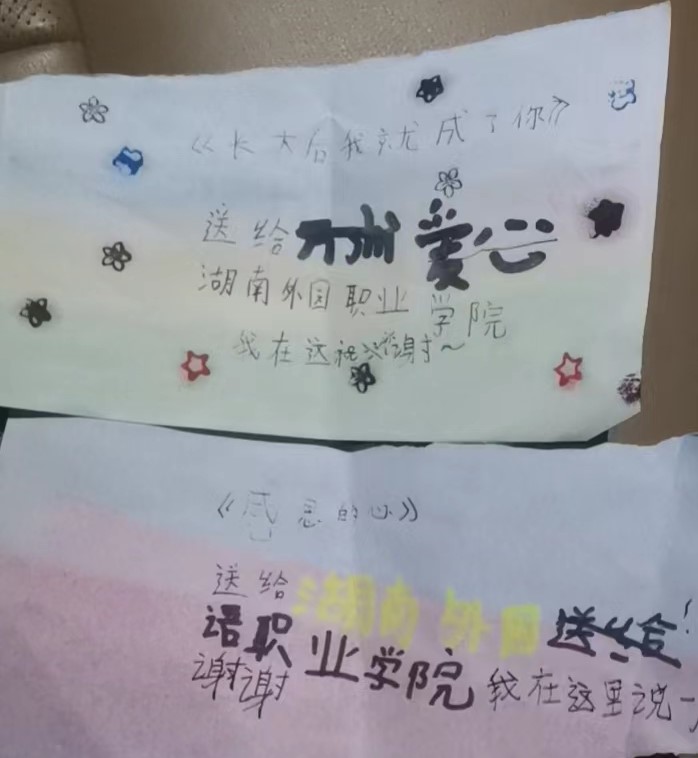 《长大后我就成了你》
送给 爱心
湖南外国职业学院
我在这 谢~
《感恩的心》
送给湖南外国
语职业学院我在这里说一
谢谢